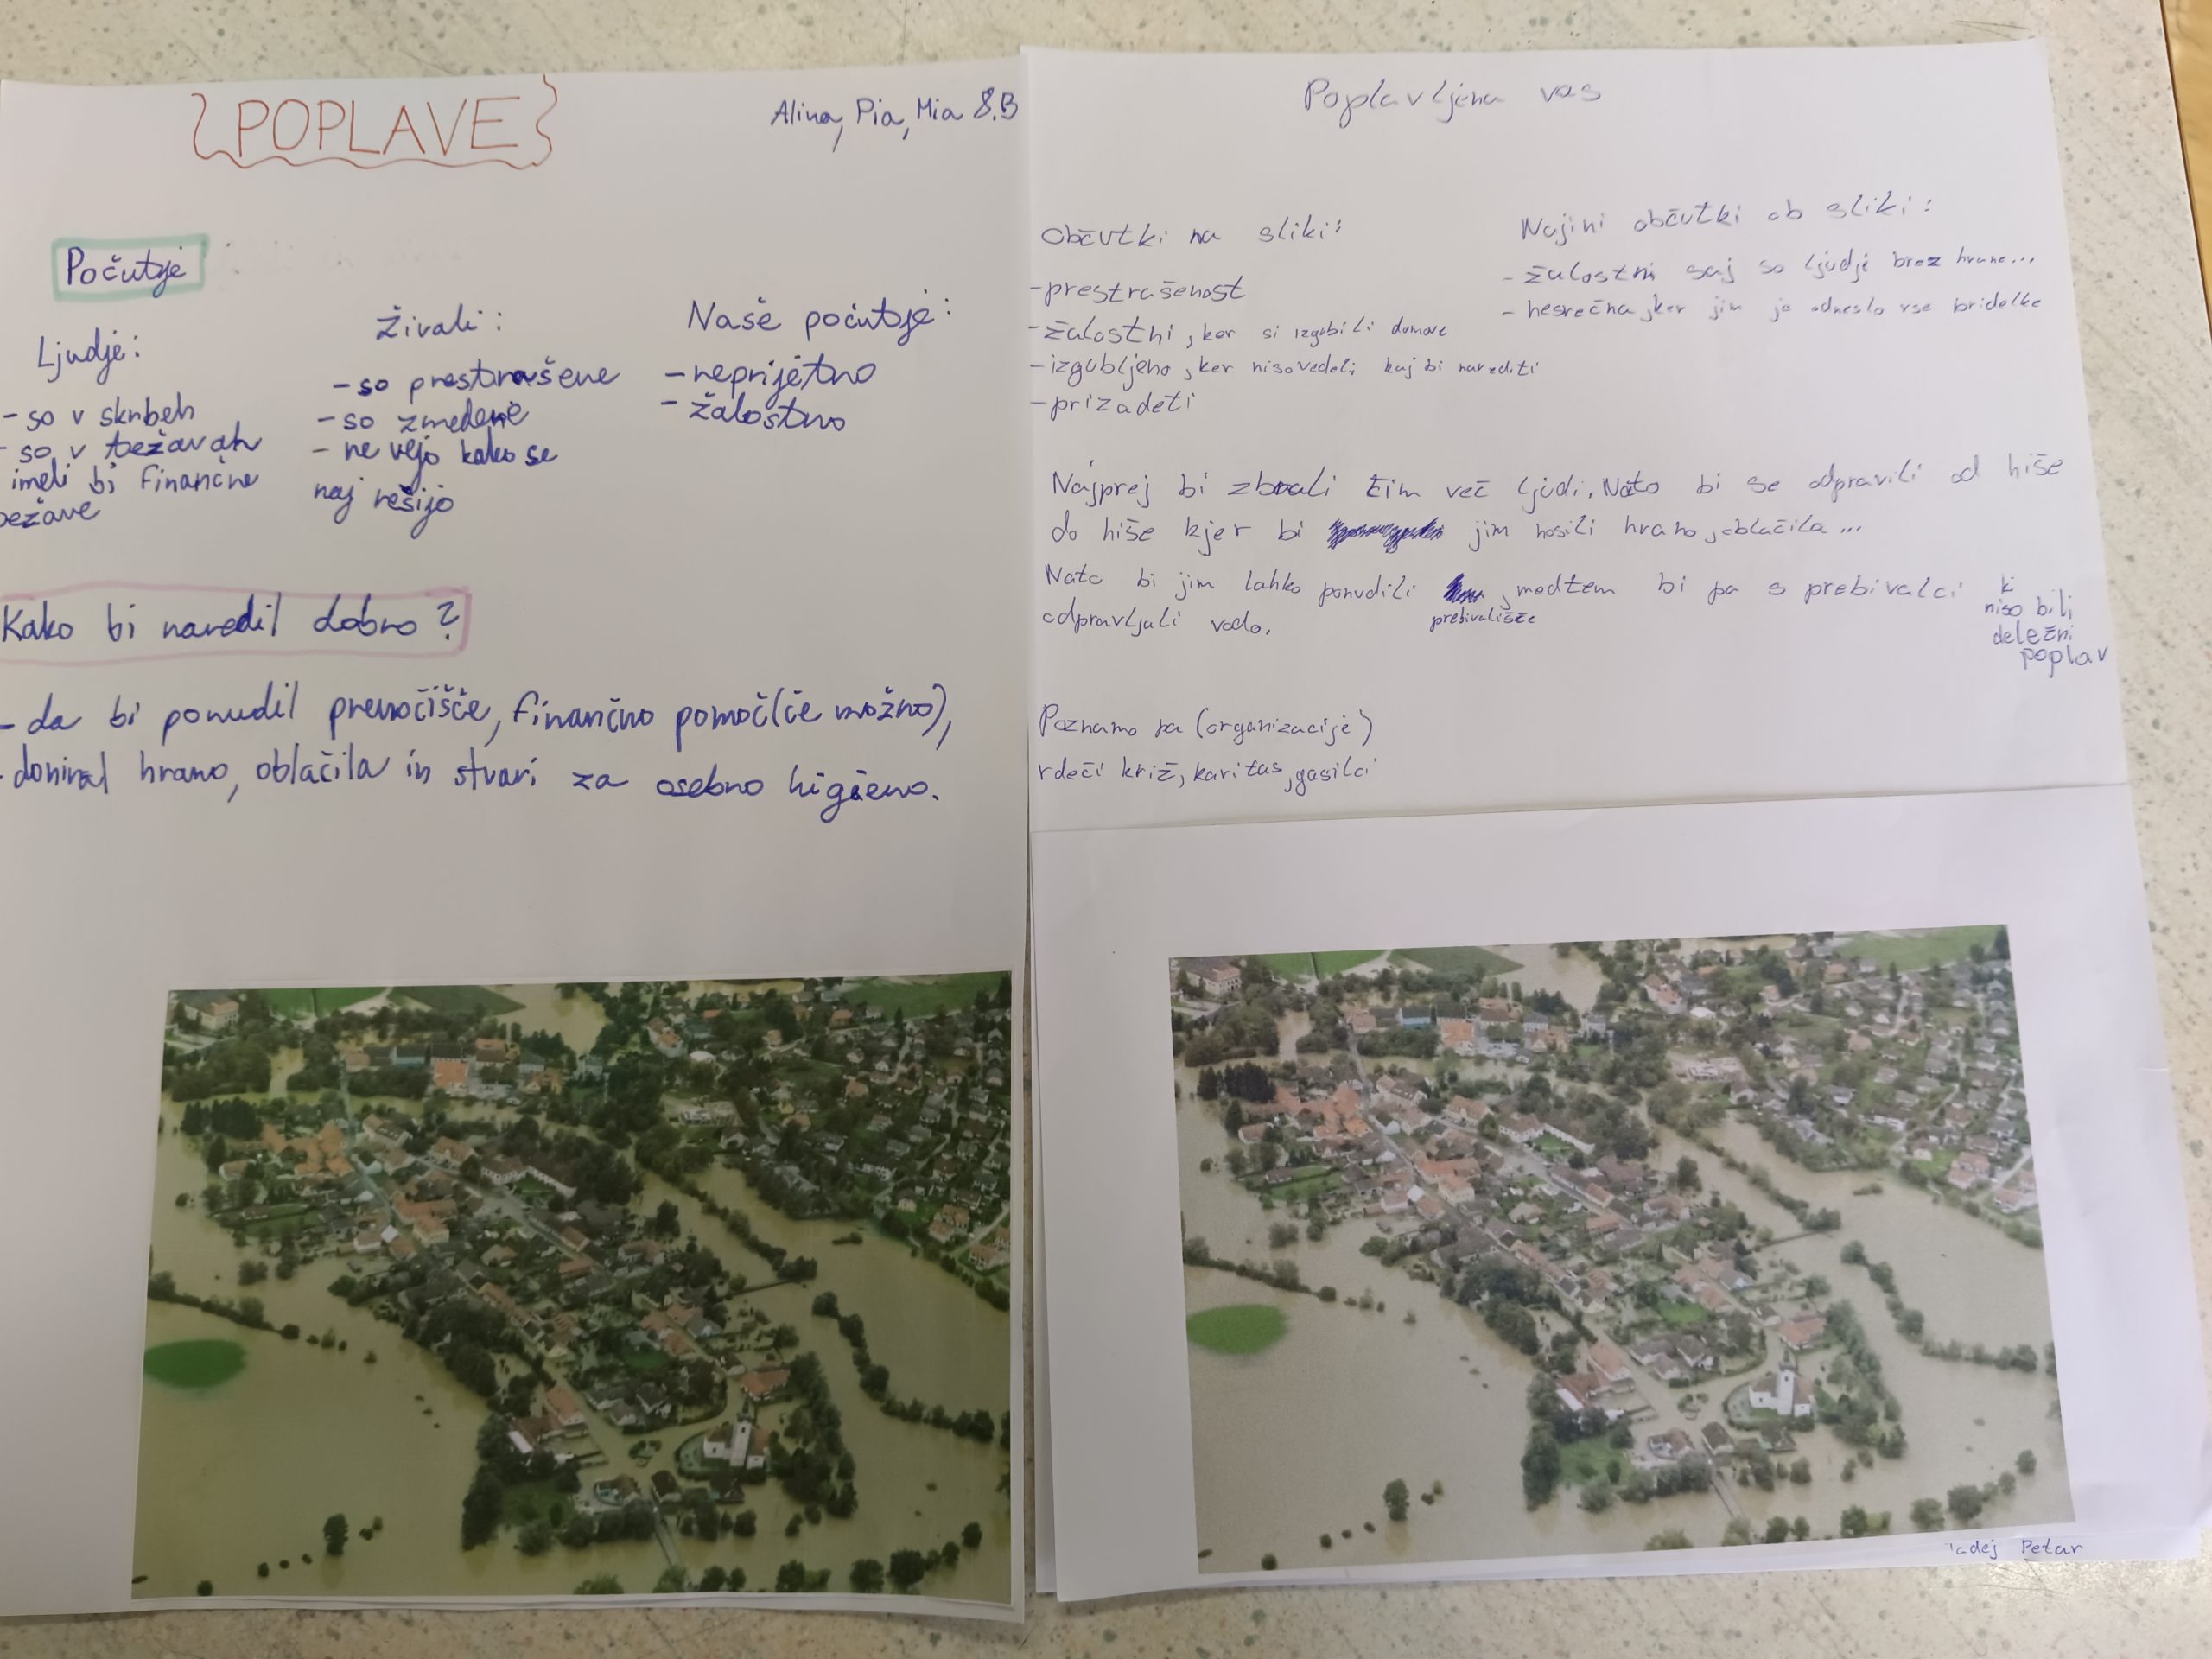 POPLAVE
Alina, Pia, Mia 8.B
Počutje
Ljudje:
- so v skrbeh
- so v težavah
imeli bi finančne
težave
Živali:
- so prestrašene
- so zmedene
- ne vejo kako se
naj rešijo
Naše počutje:
- neprijetno
- žalostno
Kako bi naredil dobro?
- da bi ponudil prenočišče, finančno pomoč (če možno),
- doniral hrano, oblačila in stvari za osebno higieno.
Poplavljena vas
Občutki na sliki:
- prestrašenost
- žalostni, ker si izgubili domove
- izgubljeno, ker niso vedeli kaj bi narediti
- prizadeti
Najini občutki ob sliki:
- žalostni saj so ljudje brez hrane...
- nesrečna, ker jim je odneslo vse pridelke
Najprej bi zbrali čim več ljudi. Nato bi se odpravili od hiše
do hiše kjer bi jim nosili hrano, oblačila...
Nato bi jim lahko ponudili prebivališče, medtem bi pa s prebivalci ki
niso bili
deležni
poplav
odpravljali vodo.
Poznamo pa (organizacije)
rdeči križ, karitas, gasilci
adej Petar